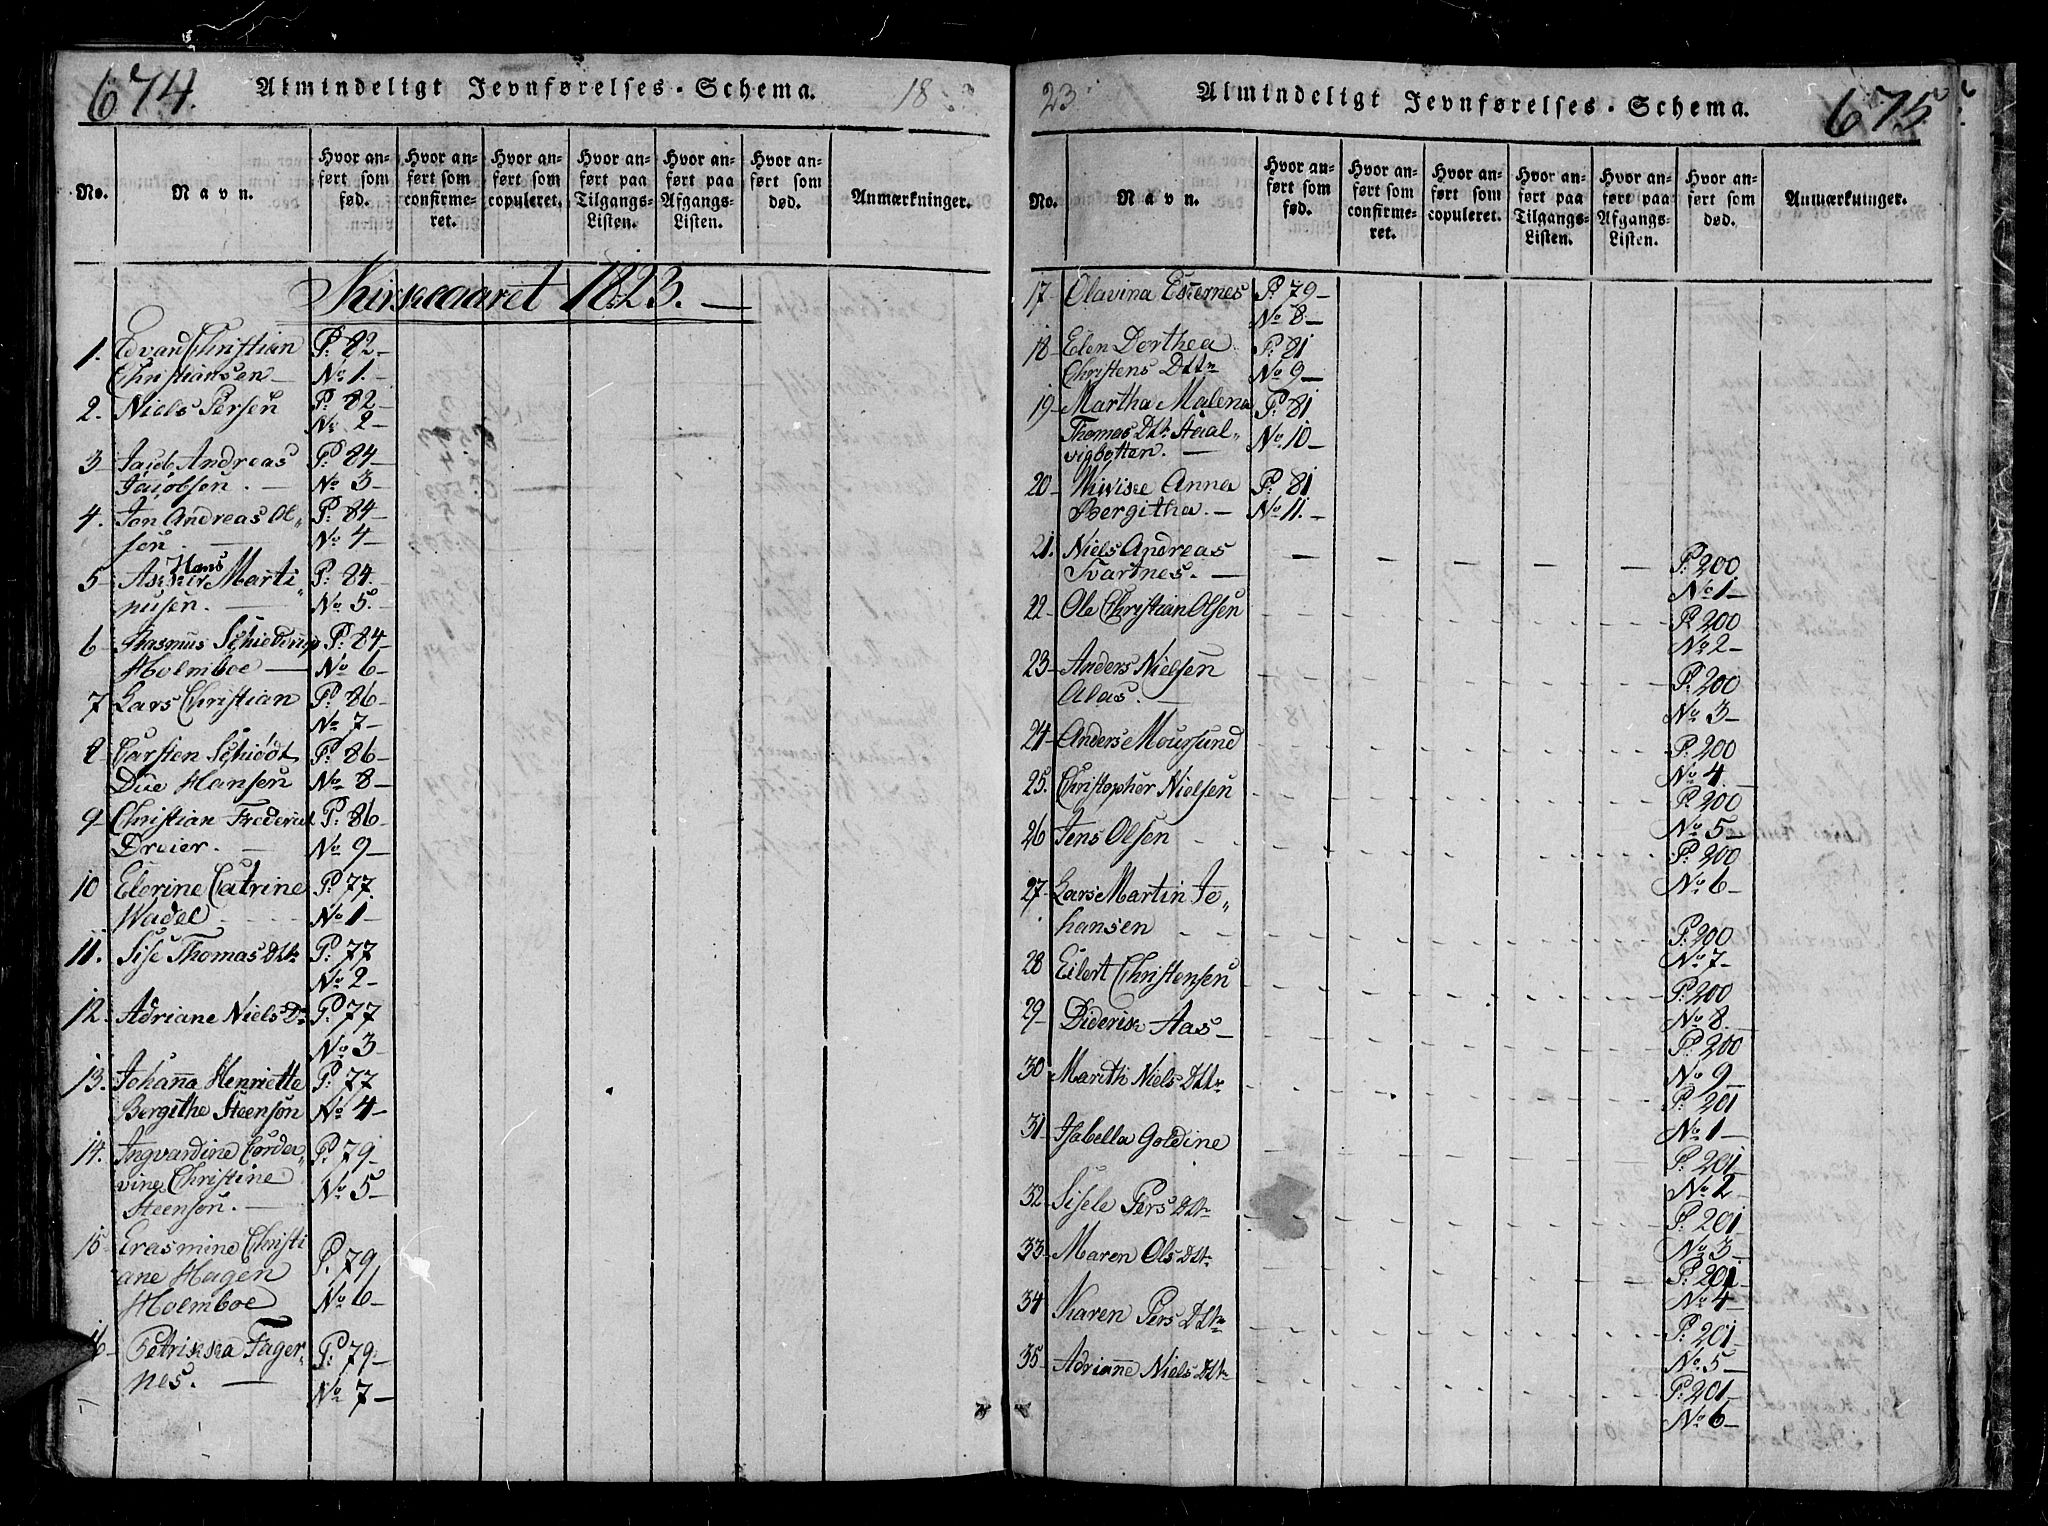 674.
Almindeligt Jevnførelses-Schema.
18
No.
Navn.
Hvor anført som fød.
Hvor anført som confirmeret.
Hvor anført som copuleret.
Hvor anført paa Tilgangs-Listen.
Hvor anført paa Afgangs-Listen.
Hvor anført som død.
Anmærkninger.
Kirkeaaret 1823.—
1. Edvard Christian P: 82—
Christiansen— No 1.—
2. Niels Persen P: 82—
No 2—
3— Jacob Andreas P: 84—
Jacobsen.— No 3—
4. Jon Andreas Ol„ P: 84—
sen.— No 4—
Hans
5 Marti„ P: 84.
nusen.— No 5.
6— Rasmus P: 84—
Holmboe— No 6—
7 Lars Christian P: 86—
No 7—
8 Carsten Schiödt P: 86—
Due Hansen No 8—
9— Christian Frederik P: 86—
Dreier.— No 9—
10 Elerine Catrine P: 77.
Wadel No 1—
11. Sise Thomas Dtr P: 77
No 2—
12. Adriane Niels Dr P: 77
No 3—
13. Johanna Henriette P: 77
Bergithe Steenson No 4—
14. Ingvardine Corde„ P: 79—
vine Christine No 5—
Steenson.—
15 Erasmine Christi P. 79
ane Hagen No 6—
Holmboe
16— Petrikka Fager„ P: 79—
nes.— No 7—
23.
Almindeligt Jevnførelses-Schema.
675
No.
Navn.
Hvor anført som fød.
Hvor anført som confirmeret.
Hvor anført som copuleret.
Hvor anført paa Tilgangs-Listen.
Hvor anført paa Afgangs-Listen.
Hvor anført som død.
Anmærkninger.
17— Olavina P: 79—
No 8.—
18— Elen Dorthea P: 81
Christens Dttr No 9—
19— Martha Malena P: 81
Thomas Dtr No 10—
vigbotten.—
20— Anna P: 81
Bergitha.— No 11.—
21. Niels Andreas P: 200
Svartnes.— No 1—
22— Ole Christian Olsen P 200
No 2—
23— Anders Nielsen P: 200
Alas.— No 3—
24— Anders Moursund P: 200
No 4.—
25. Christopher Nielsen P: 200
No 5—
26 Jens Olsen P: 200
No 6—
27— Lars Martin Jo„ P: 200
hansen No 7—
28 Eilert Christensen P: 200
No 8.—
29— Diderik Aas— P: 200
No 9—
30 Marith Niels Dttr P: 201
No 1—
31— Isabella Goldine P: 201—
No 2—
32— Sisele Pers Dtr P: 201
No 3—
33— Maren Ols Dtr P: 201—
No 4—
34 Karen Pers Dtr P: 201—
No 5—
35— Adrianne Niels Dtr P: 201—
No 6—